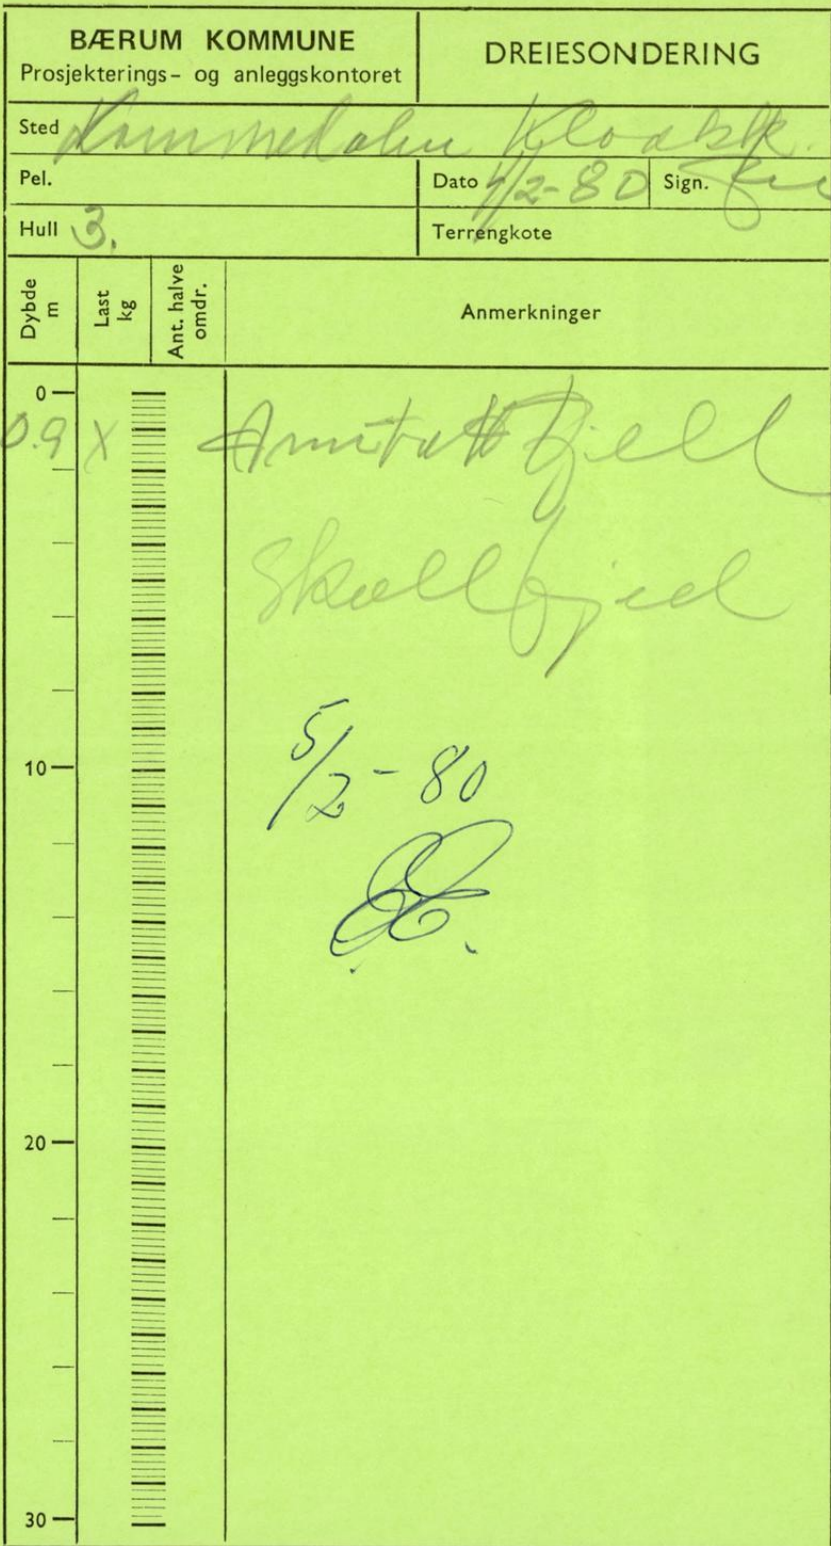 BÆRUM KOMMUNE
Prosjekterings- og anleggskontoret
DREIESONDERING
Sted Kloakk.
Pel.
Dato /2-80 Sign.
Hull 3.
Terrengkote
Dybde m
Last kg
Ant. halve omdr.
Anmerkninger
0
0.9 X Antatt fjell
Skallfjell
5/2-80
10
20
30